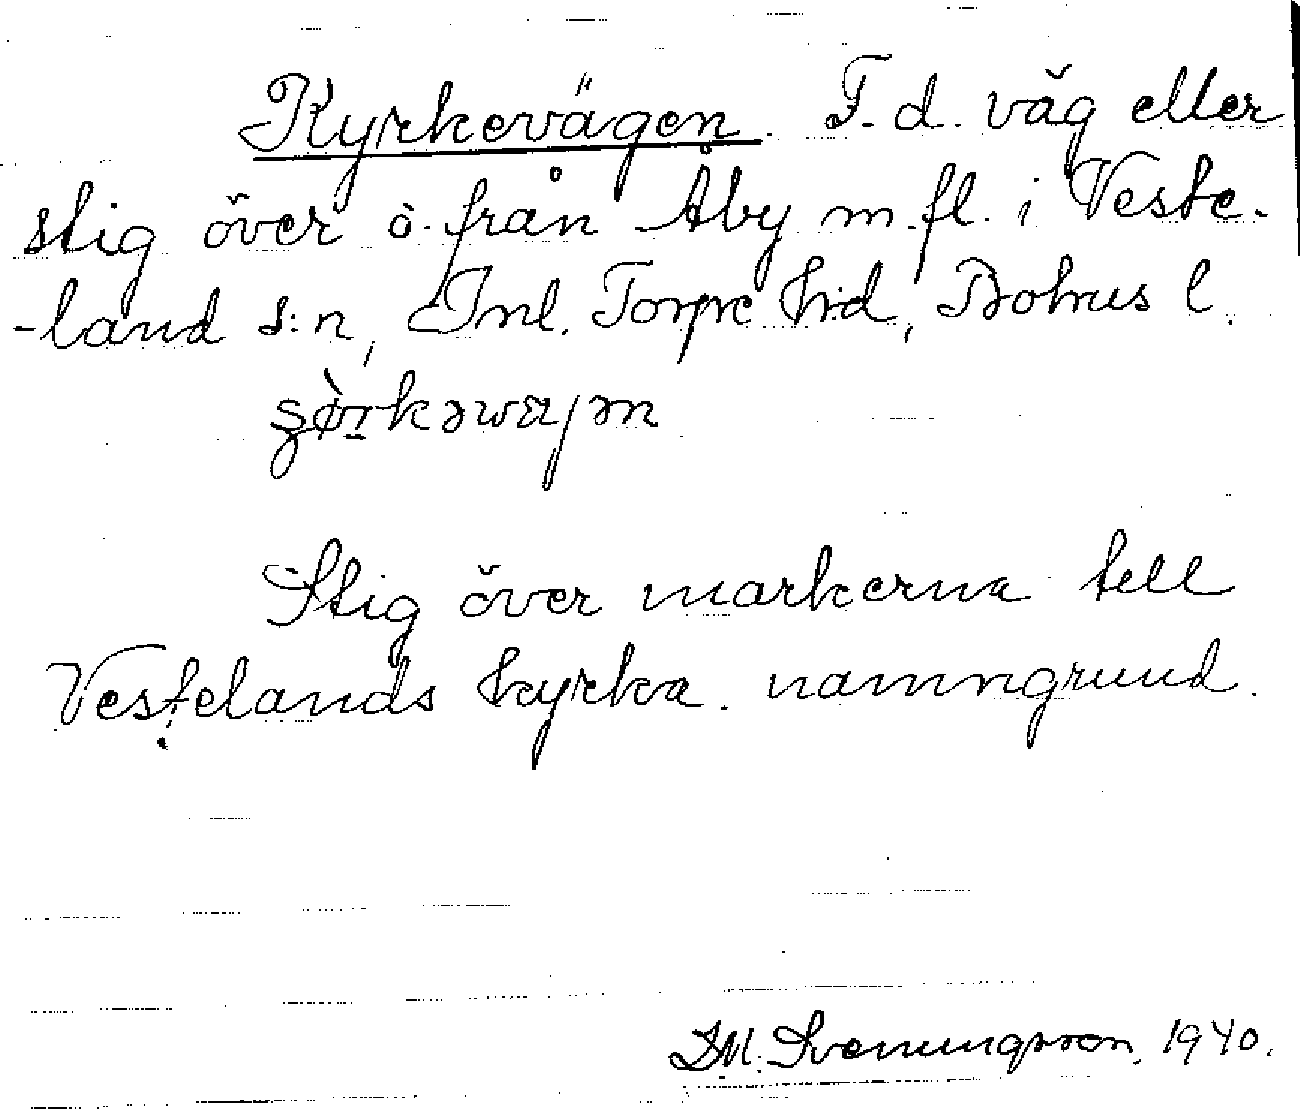 Kyrkevägen. F. d. väg eller
stig över ö. från Åby m. fl. i Veste-
-land s:n, Inl. Torpe hd, Bohus l.
Stig över markerna till
Vestelands kyrka. namngrund.
J.M. Svenungsson, 1940.